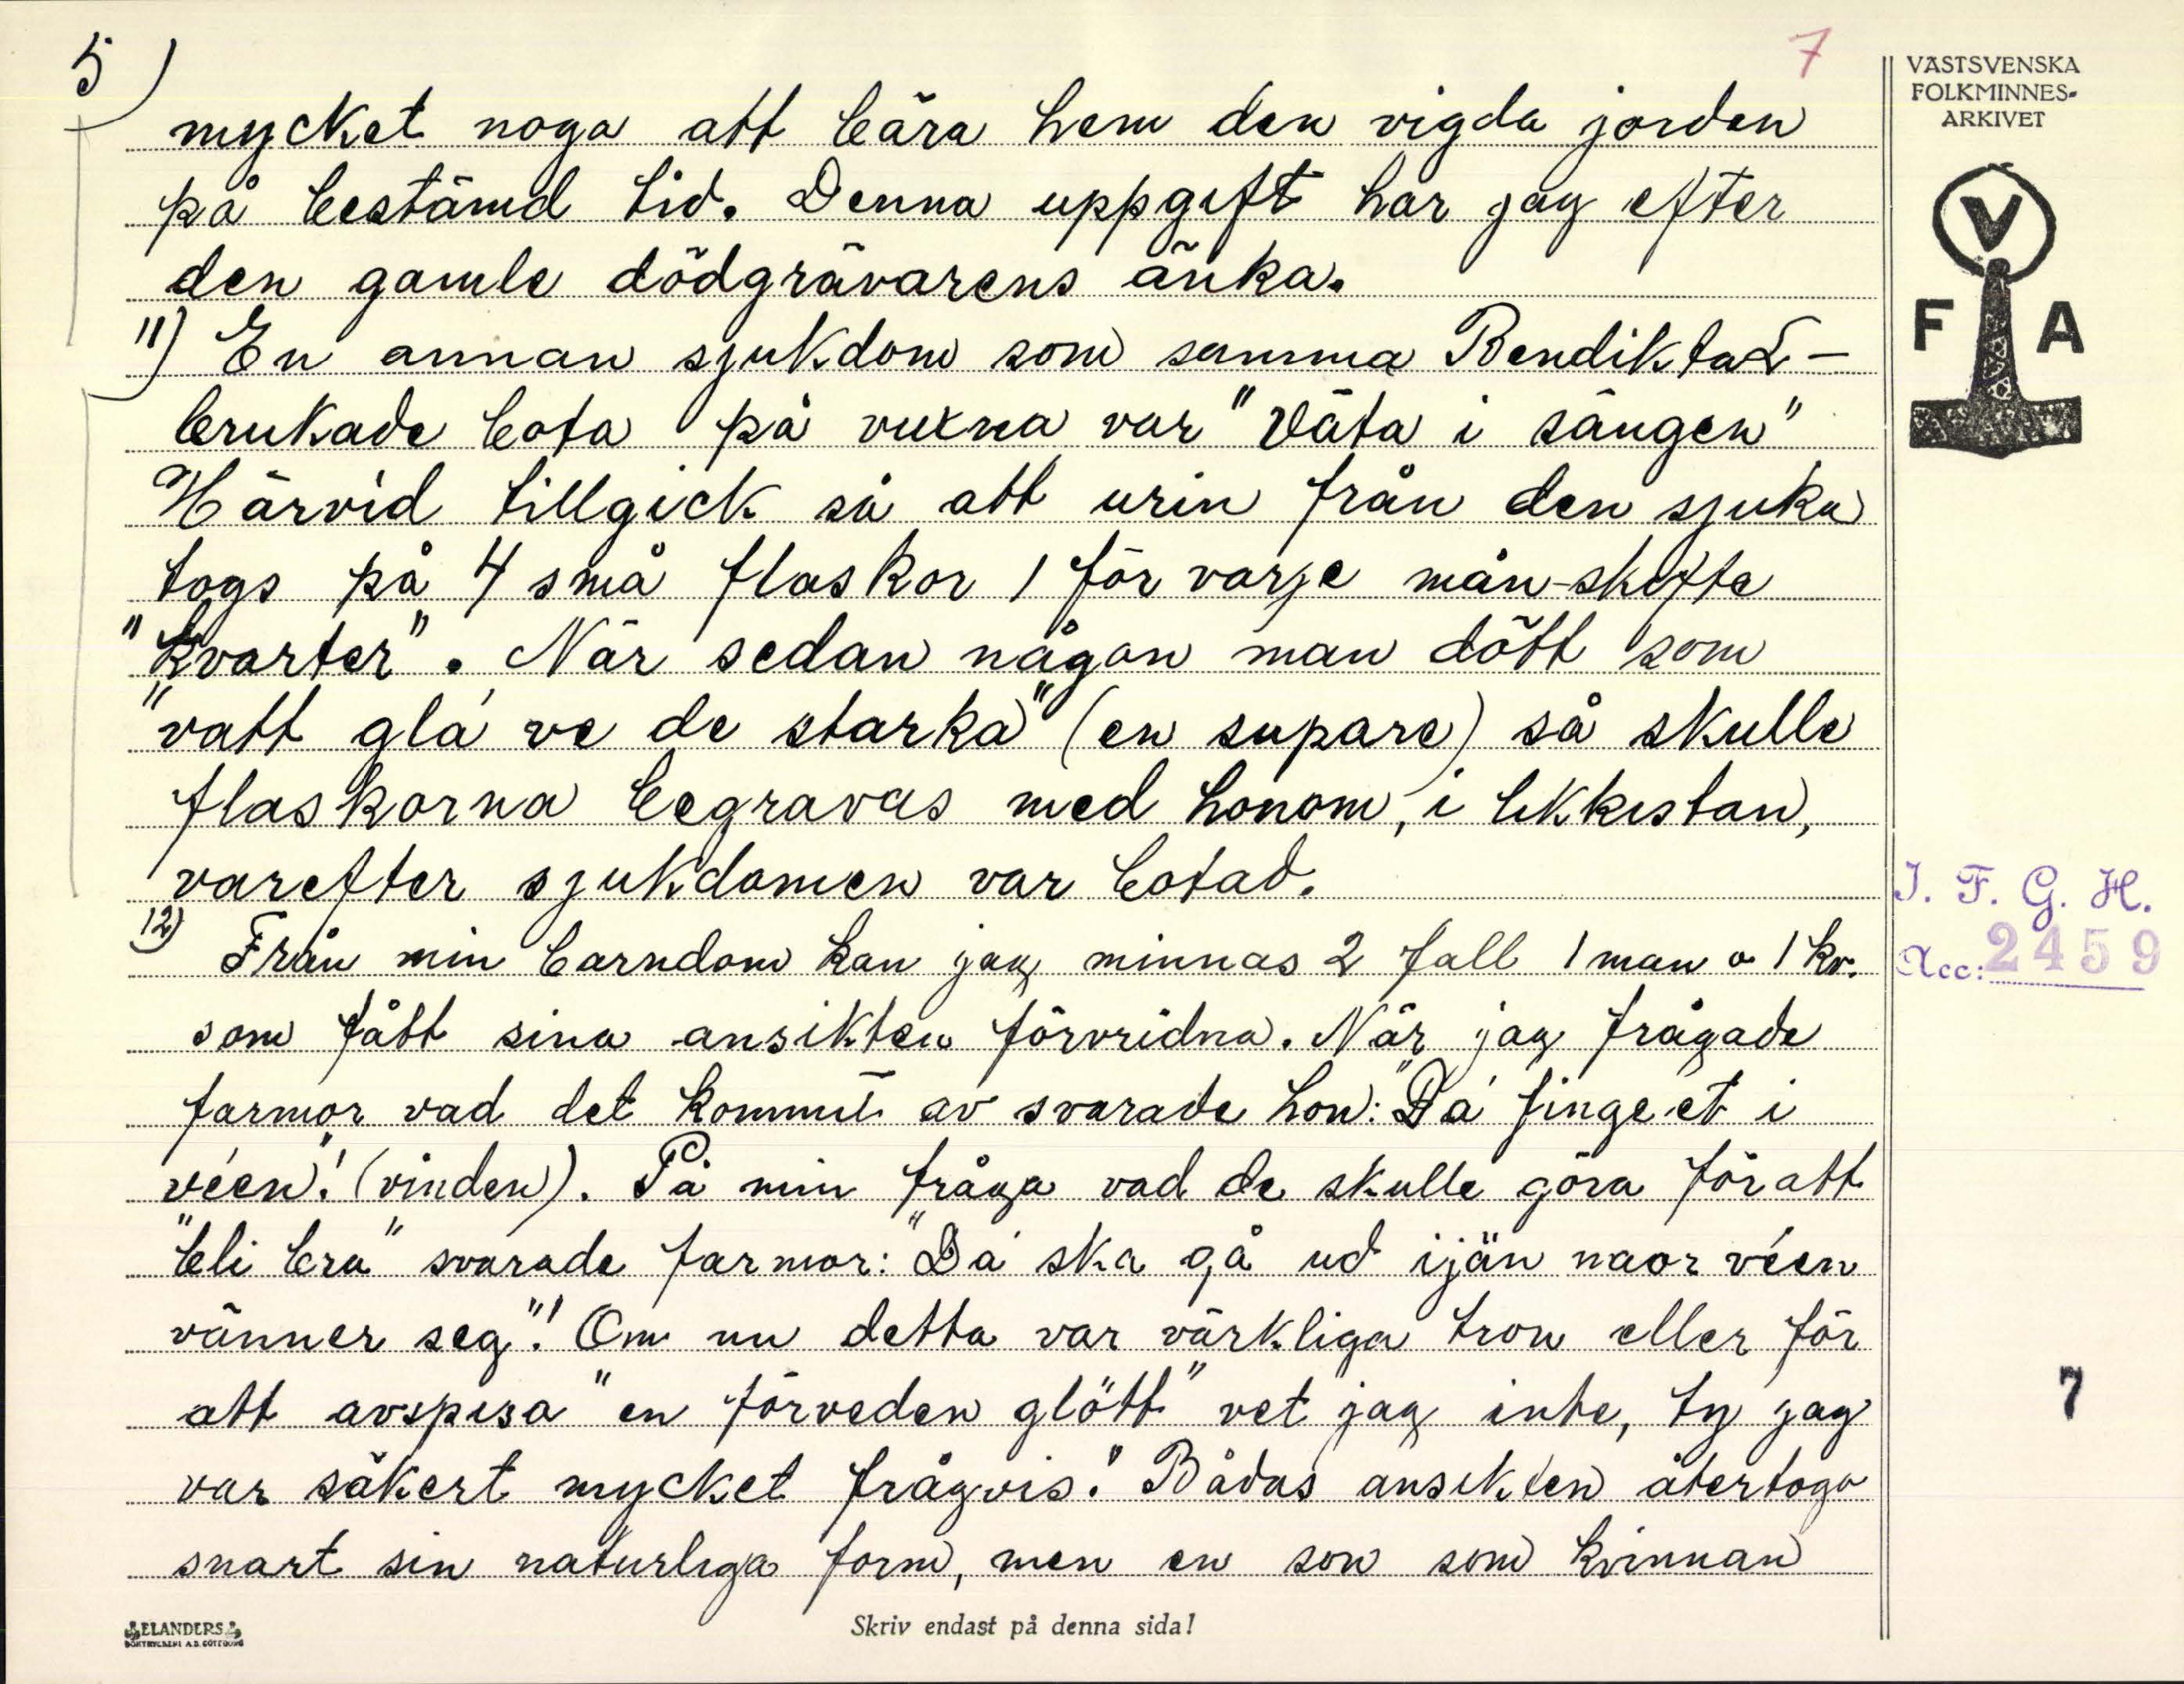 5)
7
VÄSTSVENSKA
FOLKMINNES-
ARKIVET
V
F A
mycket noga att bära hem den vigda jorden
på bestämd tid. Denna uppgift har jag efter
den gamle dödgrävarens änka.
11) En annan sjukdom som samma Bendikta
brukade bota på vuxna var "väta i sängen"
Härvid tillgick så att urin från den sjuka
togs på 4 små flaskor 1 för varje mån-skifte
"kvarter". När sedan någon man dött som
"vatt gla' ve de starka" (en supare) så skulle
flaskorna begravas med honom, i likkistan,
varefter sjukdomen var botad.
12) Från min barndom kan jag minnas 2 fall 1 man o 1 kv.
som fått sina ansikten förvridna. När jag frågade
farmor vad det kommit av svarade hon: "Dá finge et i
véen"! (vinden). På min fråga vad de skulle göra för att
"bli bra" svarade farmor: "Dá ska gå ud ijän naor véen
vänner seg"! Om nu detta var värkliga tron eller för
att avspisa "en förveden glött" vet jag inte, ty jag
var säkert mycket frågvis! Bådas ansikten återtogo
snart sin naturliga form, men en son som kvinnan
I. F. G. H.
Acc: 2459
7
ELANDERS
BOKTRYCKERI A.B. GÖTEBORG
Skriv endast på denna sida!